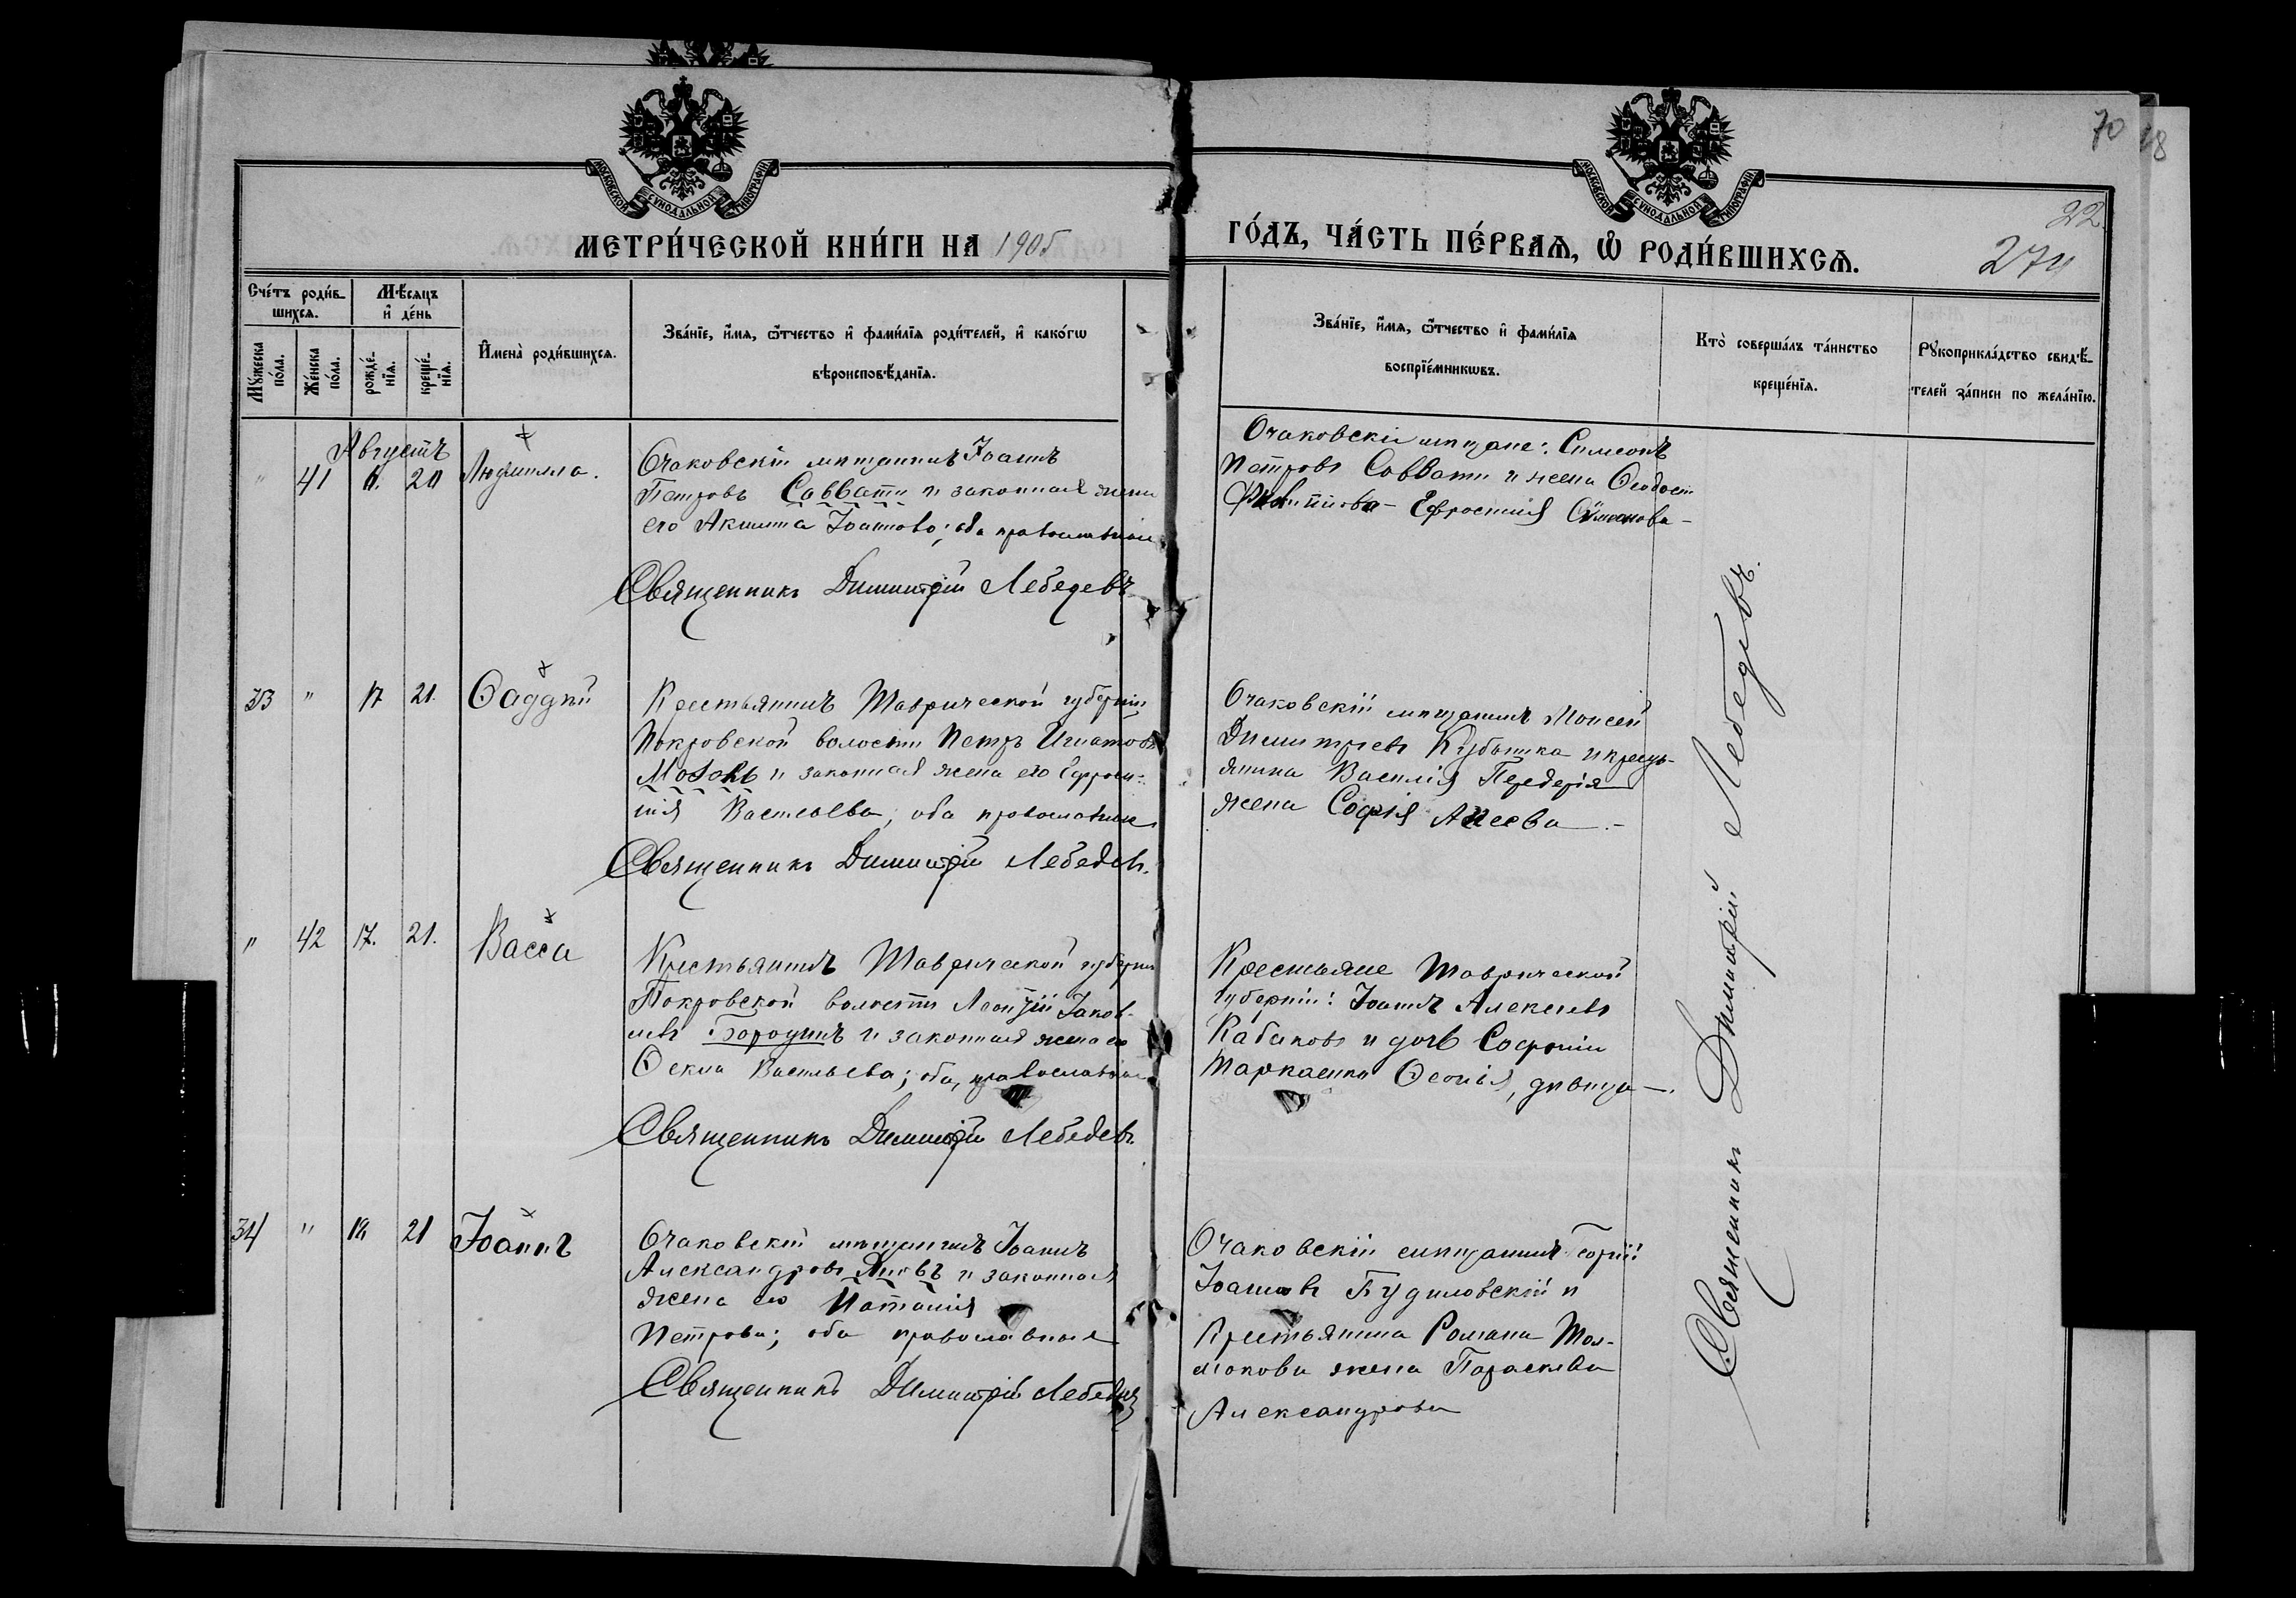 МОСКОВСКОЙ СУНОДАЛЬНОЙ ТИПОГРАФІИ
МОСКОВСКОЙ СУНОДАЛЬНОЙ ТИПОГРАФІИ
70
18
22.
МЕТРИ́ЧЕСКОЙ КНИ́ГИ НА 1905
ГО́ДЪ, ЧА́СТЬ ПЕ́РВАѦ, Ѡ҆ РОДИ́ВШИХСѦ.
274
Сче́тъ роди́в-
шихсѧ.
Мꙋ́жеска по́ла.
Же́нска по́ла.
Мѣ́сѧцъ и҆ де́нь
рожде́-
нїѧ.
креще́-
нїѧ.
И҆мена̀ роди́вшихсѧ.
Зва́нїе, и҆́мѧ, ѻ҆́тчество и҆ фами́лїѧ роди́телей, и҆ како́гѡ
вѣроисповѣ́данїѧ.
Зва́нїе, и҆́мѧ, ѻ҆́тчество и҆ фами́лїѧ
воспрїе́мникѡвъ.
Кто̀ соверша́лъ та́инство
креще́нїѧ.
Рꙋкоприкла́дство свидѣ́-
телей за́писи по жела́нїю.
Августъ
" 41 20 Людмилла.
Очаковскій мѣщанинъ Іоаннъ
Петровъ Саввати и законная жена
его Акилина Іоаннова; оба православные
Священникъ Димитрій Лебедевъ
Очаковскіе мѣщане: Симеонъ
Петровъ Саввати и жена Ѳеодосія
Филиппова - Ефросинія Симеонова -
33 " 17 21. Ѳаддей
Крестьянинъ Таврической губерніи
Покровской волости Петръ Игнатовъ
и законная жена его Ефроси-
нія Васильева; оба православные
Священникъ Димитрій Лебедевъ.
Очаковскій мѣщанинъ Моисей
Димитріевъ Кубышка и кресть-
янина Василія Передерія
жена Софія
" 42 17. 21. Васса
Крестьянинъ Таврической губерніи
Покровской волости Леонтій Іаков-
левъ Бородинъ и законная жена его
Ѳекла Васильева; оба православные
Священникъ Димитрій Лебедевъ
Крестьяне Таврической
губерніи: Іоаннъ Алексѣевъ
Кабаковъ и дочь Софоніи
Ѳеонія, дѣвица -.
34 " 18 21 Іоаннъ
Очаковскій мѣщанинъ Іоаннъ
Александровъ и законная
жена его Наталія
Петрова; оба православные
Священникъ Димитрій Лебедевъ
Очаковскій мѣщанинъ
Іоанновъ Будиловскій и
Крестьянина Романа Тол-
мокова жена Параскева
Александрова
Священникъ Димитрій Лебедевъ.